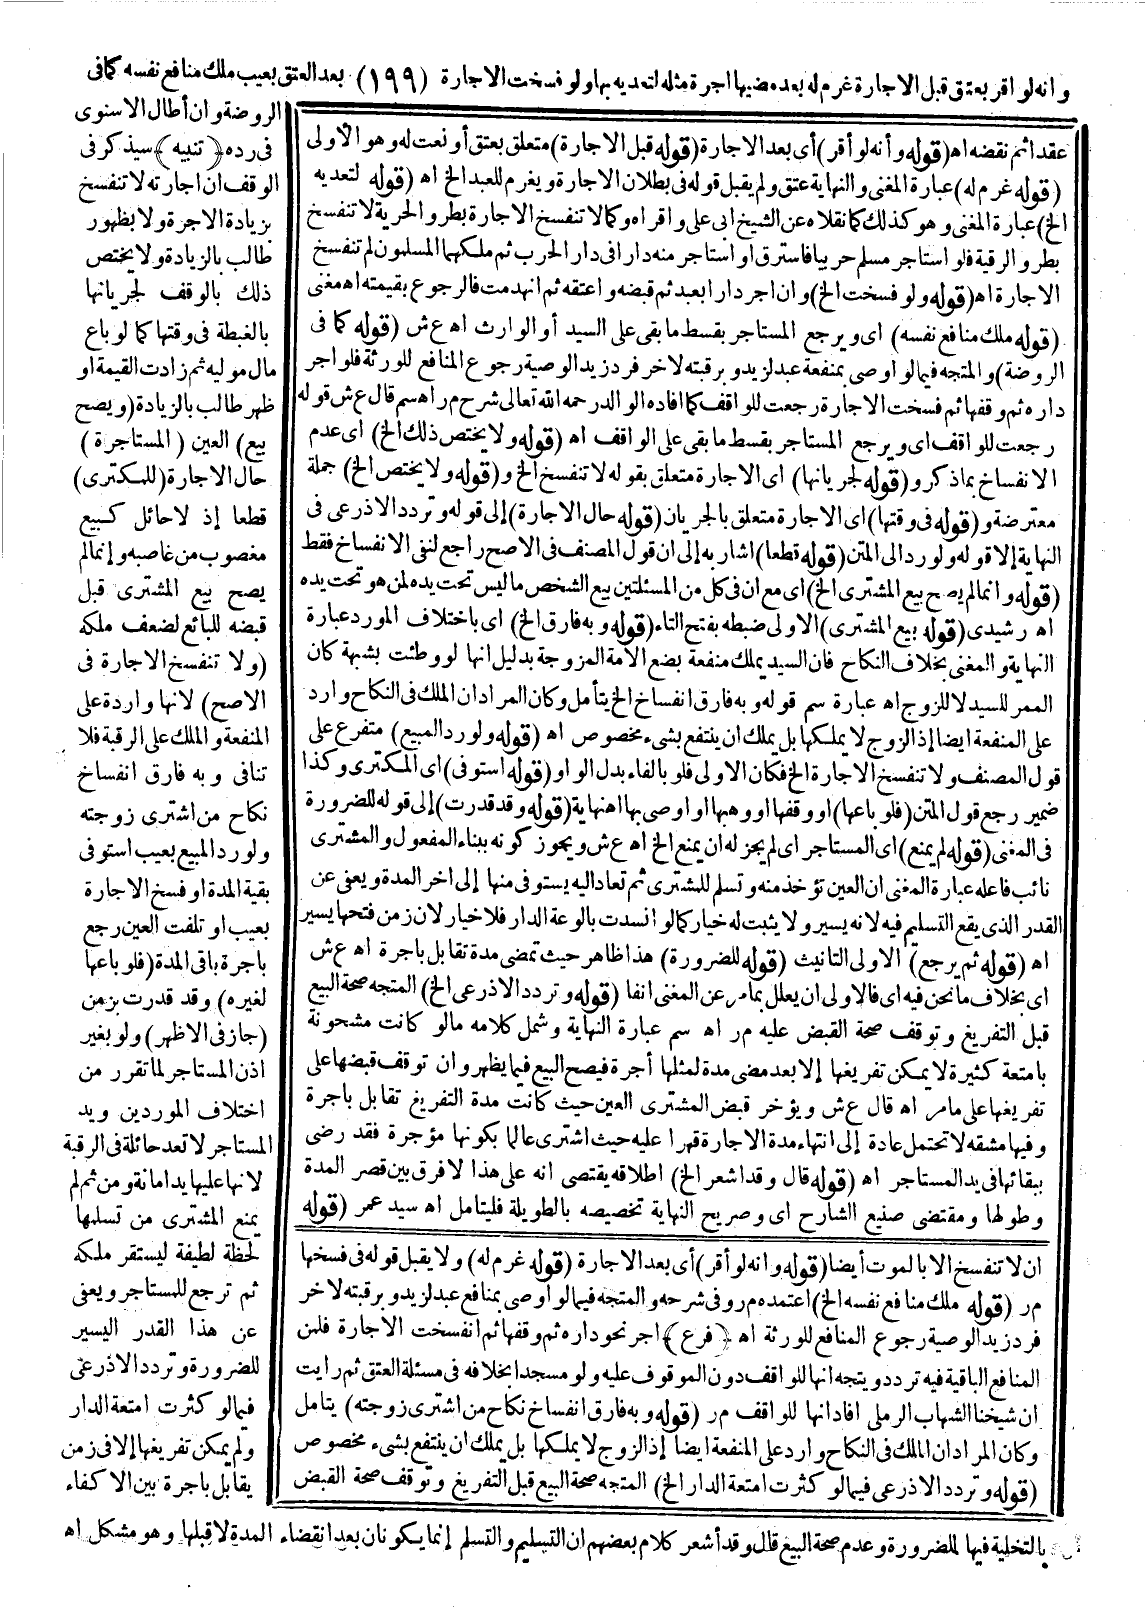 وانه لو اقر بعتق قبل الاجارة غرم له بعد مضيها اجرة مثله لتعديه بها ولو فسخت الاجارة (١٩٩) بعد العتق بعيب ملك منافع نفسه كما فى
الروضة وان أطال الاسنوى
فى رده ﴿تنبيه﴾ سيذكر فى
الوقف ان اجارته لا تنفسخ
بزيادة الاجرة ولا بظهور
طالب بالزيادة ولا يختص
ذلك بالوقف لجريانها
بالغبطة فى وقتها كما لو باع
مال موليه ثم زادت القيمة او
ظهر طالب بالزيادة (ويصح
بيع) العين (المستاجرة)
حال الاجارة (للمكترى)
قطعا إذ لا حائل كبيع
مغصوب من غاصبه وإنما لم
يصح بيع المشترى قبل
قبضه للبائع لضعف ملكه
(ولا تنفسخ الاجارة فى
الاصح) لانها واردة على
المنفعة والملك على الرقبة فلا
تنافى وبه فارق انفساخ
نكاح من اشترى زوجته
ولو رد المبيع بعيب استوفى
بقية المدة او فسخ الاجارة
بعيب او تلفت العين رجع
باجرة باقى المدة (فلو باعها
لغيره) وقد قدرت بزمن
(جاز فى الاظهر) ولو بغير
اذن المستاجر لما تقرر من
اختلاف الموردين ويد
المستاجر لا تعد حائلة فى الرقبة
لانها عليها يد امانة ومن ثم لم
يمنع المشترى من تسلمها
لحظة لطيفة ليستقر ملكه
ثم ترجع للمستاجر ويعفى
عن هذا القدر اليسير
للضرورة وتردد الاذرعى
فيما لو كثرت امتعة الدار
ولم يمكن تفريغها إلا فى زمن
يقابل باجرة بين الاكتفاء
بالتخلية فيها للضرورة وعدم صحة البيع قال وقد أشعر كلام بعضهم ان التسليم والتسلم إنما يكونان بعد انقضاء المدة لا قبلها وهو مشكل اه
عقدا ثم نقضه اه (قوله وأنه لو أقر) أى بعد الاجارة (قوله قبل الاجارة) متعلق بعتق أو نعت له وهو الأولى
(قوله غرم له) عبارة المغنى والنهاية عتق ولم يقبل قوله فى بطلان الاجارة ويغرم للعبد الخ اه (قوله لتعديه
الخ) عبارة المغنى وهو كذلك كما نقلاه عن الشيخ ابى على واقراه وكما لا تنفسخ الاجارة بطرو الحرية لا تنفسخ
بطرو الرقية فلو استاجر مسلم حربيا فاسترق او استاجر منه دارا فى دار الحرب ثم ملكها المسلمون لم تنفسخ
الاجارة اه (قوله ولو فسخت الخ) وان اجر دارا بعبد ثم قبضه واعتقه ثم انهدمت فالرجوع بقيمته اه مغنى
(قوله ملك منافع نفسه) اى ويرجع المستاجر بقسط ما بقى على السيد أو الوارث اه ع ش (قوله كما فى
الروضة) والمتجه فيما لو اوصى بمنفعة عبد لزيد وبرقبته لاخر فرد زيد الوصية رجوع المنافع للورثة فلو اجر
داره ثم وقفها ثم فسخت الاجارة رجعت للواقف كما افاده الوالد رحمه الله تعالى شرح م ر اه سم قال ع ش قوله
رجعت للواقف اى ويرجع المستاجر بقسط ما بقى على الواقف اه (قوله ولا يختص ذلك الخ) اى عدم
الانفساخ بما ذكر و(قوله لجريانها) اى الاجارة متعلق بقوله لا تنفسخ الخ و(قوله ولا يختص الخ) جملة
معترضة و(قوله فى وقتها) اى الاجارة متعلق بالجريان (قوله حال الاجارة) إلى قوله وتردد الاذرعى فى
النهاية إلا قوله ولو رد الى المتن (قوله قطعا) اشار به إلى ان قول المصنف فى الاصح راجع لنفى الانفساخ فقط
(قوله وانما لم يصح بيع المشترى الخ) اى مع ان فى كل من المسئلتين بيع الشخص ما ليس تحت يده لمن هو تحت يده
اه رشيدى (قوله بيع المشترى) الاولى ضبطه بفتح التاء (قوله وبه فارق الخ) اى باختلاف المورد عبارة
النهاية والمغنى بخلاف النكاح فان السيد يملك منفعة بضع الأمة المزوجة بدليل انها لو وطئت بشبهة كان
الممر للسيد لا للزوج اه عبارة سم قوله وبه فارق انفساخ الخ يتأمل وكان المراد ان الملك فى النكاح وارد
على المنفعة ايضا إذ الزوج لا يملكها بل يملك ان ينتفع بشىء مخصوص اه (قوله ولو رد المبيع) متفرع على
قول المصنف ولا تنفسخ الاجارة الخ فكان الاولى فلو بالفاء بدل الواو (قوله استوفى) اى المكترى وكذا
ضمير رجع قول المتن (فلو باعها) او وقفها او وهبها او اوصى بها اه نهاية (قوله وقد قدرت) إلى قوله للضرورة
فى المغنى (قوله لم يمنع) اى المستاجر اى لم يجز له ان يمنع الخ اه ع ش ويجوز كونه ببناء المفعول والمشترى
نائب فاعله عبارة المغنى ان العين تؤخذ منه وتسلم للمشترى ثم تعاد اليه يستوفى منها إلى اخر المدة ويعفى عن
القدر الذى يقع التسليم فيه لانه يسير ولا يثبت له خيار كما لو انسدت بالوعة الدار فلا خيار لان زمن فتحها يسير
اه (قوله ثم يرجع) الاولى التانيث (قوله للضرورة) هذا ظاهر حيث تمضى مدة تقابل باجرة اه ع ش
اى بخلاف ما نحن فيه اى فالاولى ان يعلل بما مر عن المغنى انفا (قوله وتردد الاذرعى الخ) المتجه صحة البيع
قبل التفريغ وتوقف صحة القبض عليه م ر اه سم عبارة النهاية وشمل كلامه ما لو كانت مشحونة
بامتعة كثيرة لا يمكن تفريغها إلا بعد مضى مدة لمثلها أجرة فيصح البيع فيما يظهر وان توقف قبضها على
تفريغها على ما مر اه قال ع ش ويؤخر قبض المشترى العين حيث كانت مدة التفريغ تقابل باجرة
وفيها مشقه لا تحتمل عادة إلى انتهاء مدة الاجارة قهرا عليه حيث اشترى عالما بكونها مؤجرة فقد رضى
ببقائها فى يد المستاجر اه (قوله قال وقد اشعر الخ) اطلاقه يقتضى انه على هذا لا فرق بين قصر المدة
وطولها ومقتضى صنيع الشارح اى وصريح النهاية تخصيصه بالطويلة فليتامل اه سيد عمر (قوله
ان لا تنفسخ الا بالموت أيضا (قوله وانه لو أقر) أى بعد الاجارة (قوله غرم له) ولا يقبل قوله فى فسخها
م ر (قوله ملك منافع نفسه الخ) اعتمده م ر وفى شرحه والمتجه فيما لو اوصى بمنافع عبد لزيد وبرقبته لاخر
فرد زيد الوصية رجوع المنافع للورثة اه ﴿فرع﴾ اجر نحو داره ثم وقفها ثم انفسخت الاجارة فلمن
المنافع الباقية فيه تردد ويتجه انها للواقف دون الموقوف عليه ولو مسجدا بخلافه فى مسئلة العتق ثم رايت
ان شيخنا الشهاب الرملى افاد انها للواقف م ر (قوله وبه فارق انفساخ نكاح من اشترى زوجته) يتامل
وكان المراد ان الملك فى النكاح وارد على المنفعة ايضا إذ الزوج لا يملكها بل يملك ان ينتفع بشىء مخصوص
(قوله وتردد الاذرعى فيما لو كثرت امتعة الدار الخ) المتجه صحة البيع قبل التفريغ وتوقف صحة القبض